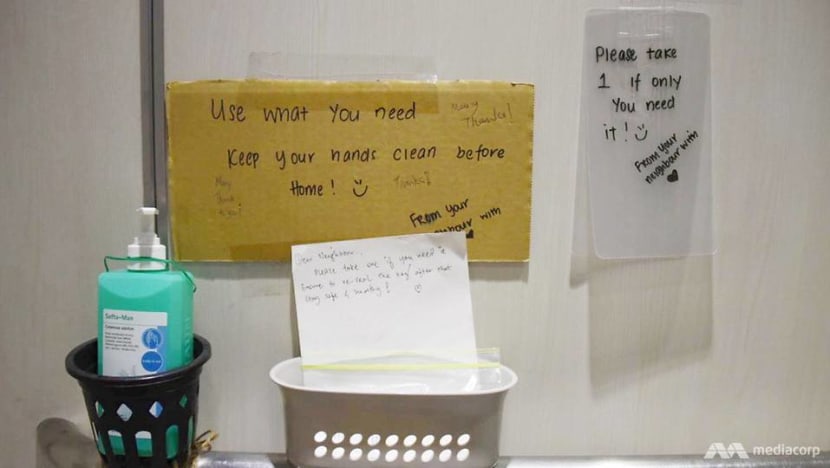 Use what you need
Many
Thanks!
Keep your hands clean before
Home!
Thanks!
From your
neighbour with
Please take
1 if only
You need
it!
From Your
neighbour with
Dear Neighbour,
Please take one if you need it
Ensure to re-seal the bag after that
Stay safe & healthy!
Softa-Man
mediacorp